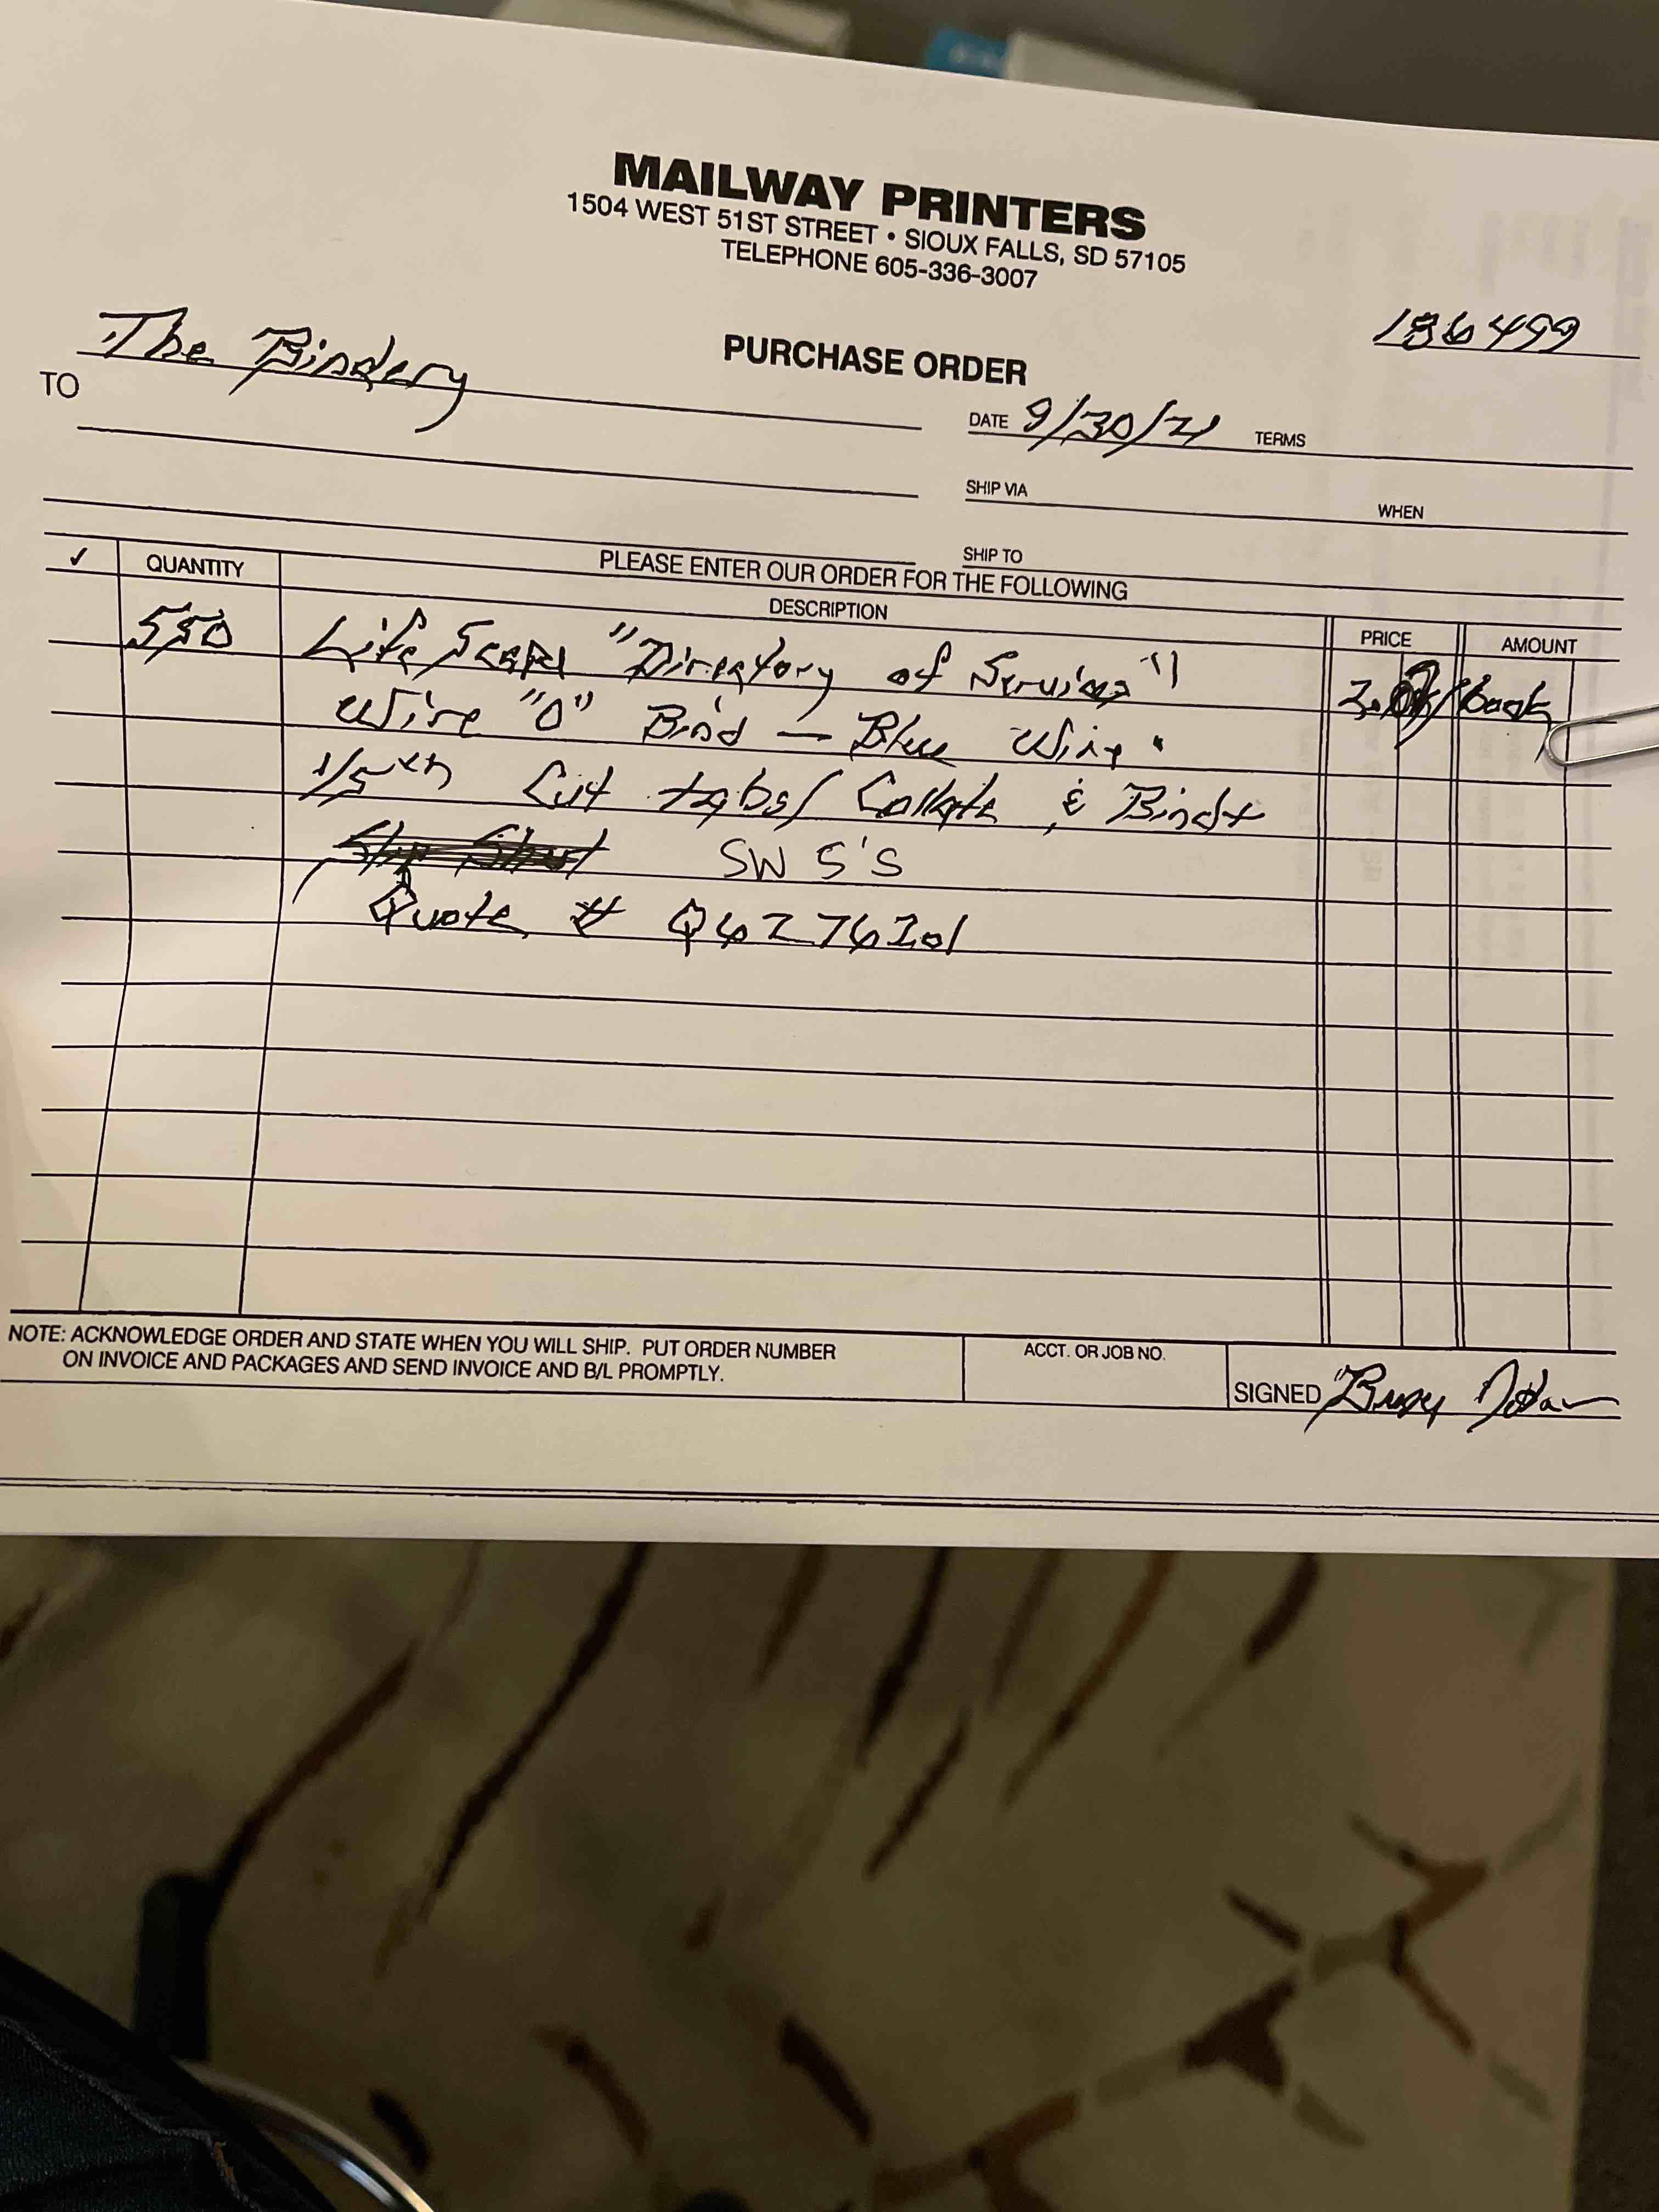 MAILWAY PRINTERS
1504 WEST 51ST STREET • SIOUX FALLS, SD 57105
TELEPHONE 605-336-3007
186499
PURCHASE ORDER
TO The Bindery
DATE 9/30/21 TERMS
SHIP VIA WHEN
SHIP TO
PLEASE ENTER OUR ORDER FOR THE FOLLOWING
✓ QUANTITY DESCRIPTION PRICE AMOUNT
550 Life Scape "Directory of Services" /book
Wire "O" Bind — Blue Wire.
1/5th Cut tabs/ Collate & Bind+
SW 5'S
Quote # Q6276201
NOTE: ACKNOWLEDGE ORDER AND STATE WHEN YOU WILL SHIP. PUT ORDER NUMBER
ON INVOICE AND PACKAGES AND SEND INVOICE AND B/L PROMPTLY.
ACCT. OR JOB NO.
SIGNED